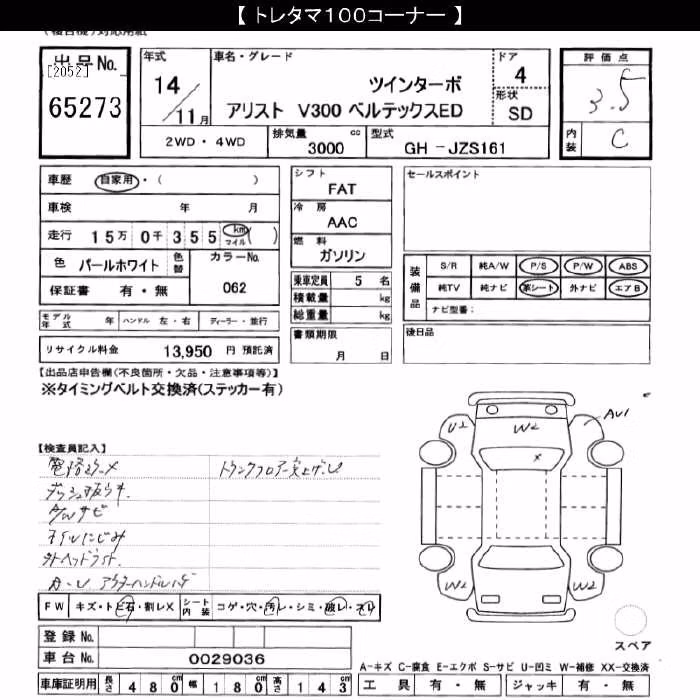 【 トレタマ100コーナー 】
出品No.
[2052]
65273
年式
14
11月
車名・グレード
ツインターボ
アリスト V300 ベルテックスED
ドア
4
形状
SD
評価点
3.5
内装
C
2WD・4WD
排気量
3000 cc
型式
GH -JZS161
車歴 自家用・( )
車検 年 月
走行 15万 0千 3 5 5 km マイル ( )
色 パールホワイト 色替
カラーNo.
062
保証書 有・無
モデル年式 年 ハンドル 左・右 ディーラー・並行
リサイクル料金 13,950 円 預託済
シフト
FAT
冷房
AAC
燃料
ガソリン
乗車定員 5 名
積載量 kg
総重量 kg
書類期限
月 日
セールスポイント
装備品
S/R 純A/W P/S P/W ABS
純TV 純ナビ 革シート 外ナビ エアB
ナビ型番:
後日品
【出品店申告欄(不良箇所・欠品・注意事項等)】
※タイミングベルト交換済(ステッカー有)
【検査員記入】
トランクフロアー突上ゲ
A/Wサビ
オイルにじみ
外ヘッドライト
U2
W2
AU1
×
W2
W2
FW キズ・トビ石・割レX シート内装 コゲ・穴・汚レ・シミ・破レ・スレ
登録No.
車台No. 0029036
車庫証明用 長さ 480cm 幅 180cm 高さ 143cm
スペア
A-キズ C-腐食 E-エクボ S-サビ U-凹ミ W-補修 XX-交換済
工具 有・無 ジャッキ 有・無